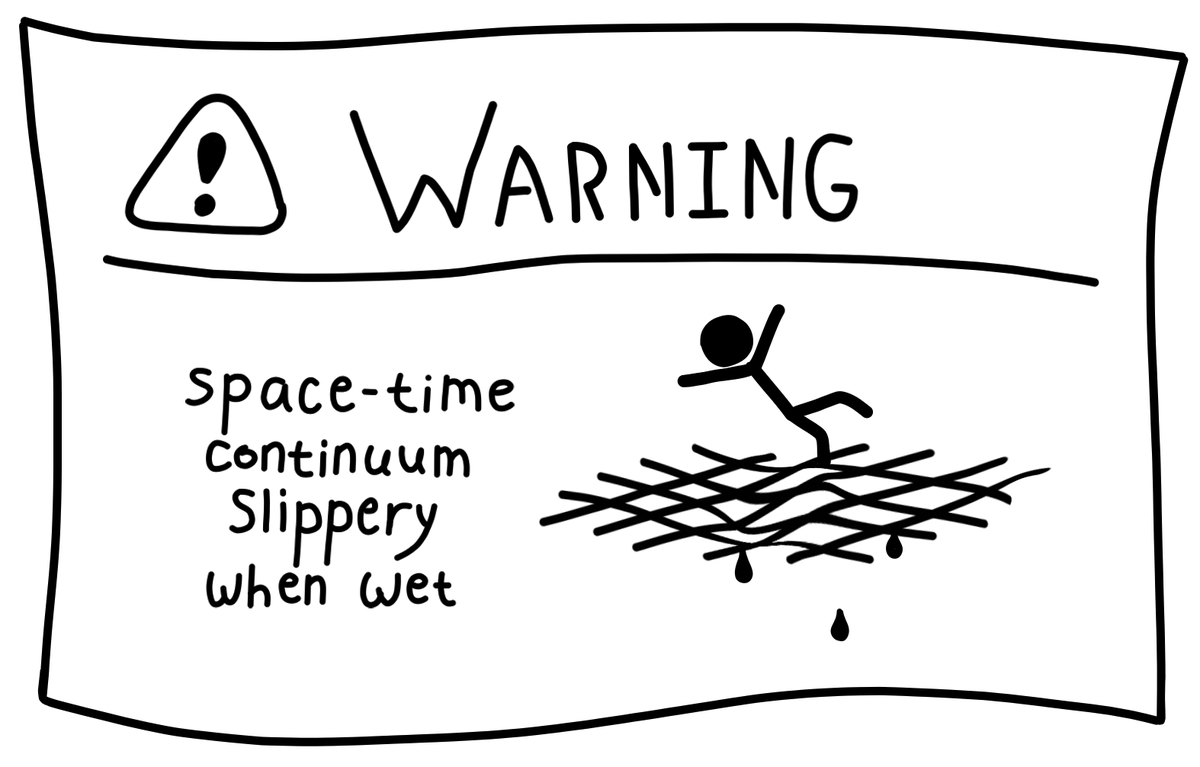 WARNING
space-time
continuum
Slippery
when wet